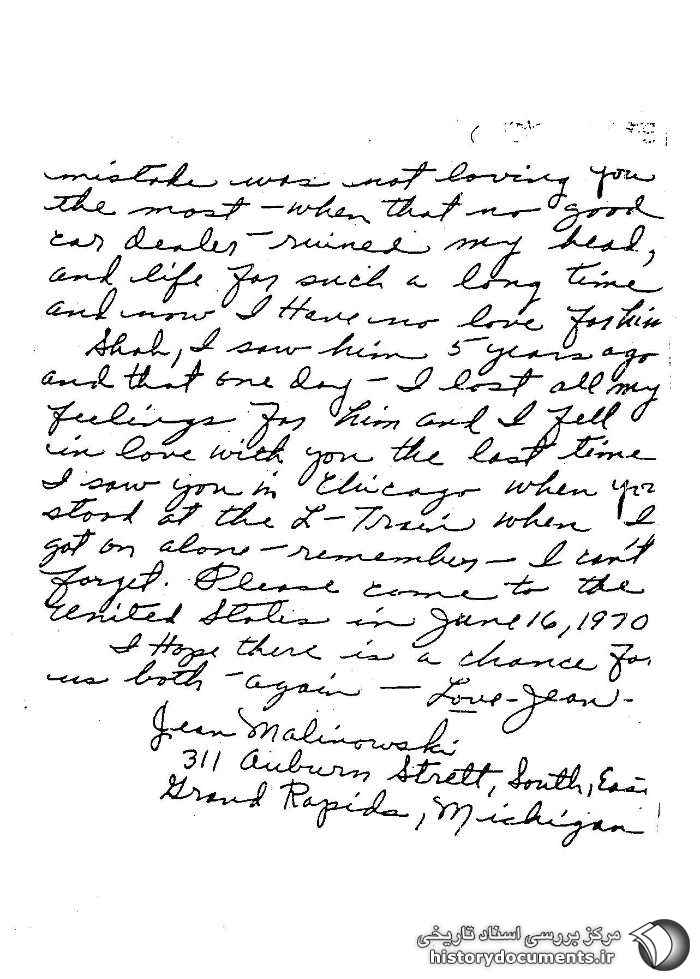 mistake was not loving you
the most - when that no good
car dealer - ruined my head,
and life for such a long time
and now I Have no love for him
Shah, I saw him 5 years ago
and that one day - I lost all my
feelings for him and I fell
in love with you the last time
I saw you in Chicago when you
stood at the L-Train when I
got on alone - remember - I can't
forget. Please come to the
United States in June 16, 1970
I Hope there is a chance for
us both - again - Love - Jean -
Jean Malinowski
311 Auburn Strett, South, East
Grand Rapids, Michigan
مرکز بررسی اسناد تاریخی
historydocuments.ir